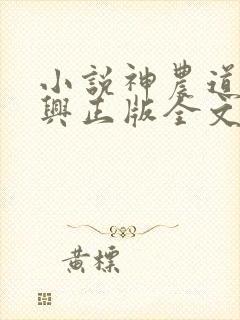 小說神農道
興正版全文
黃標